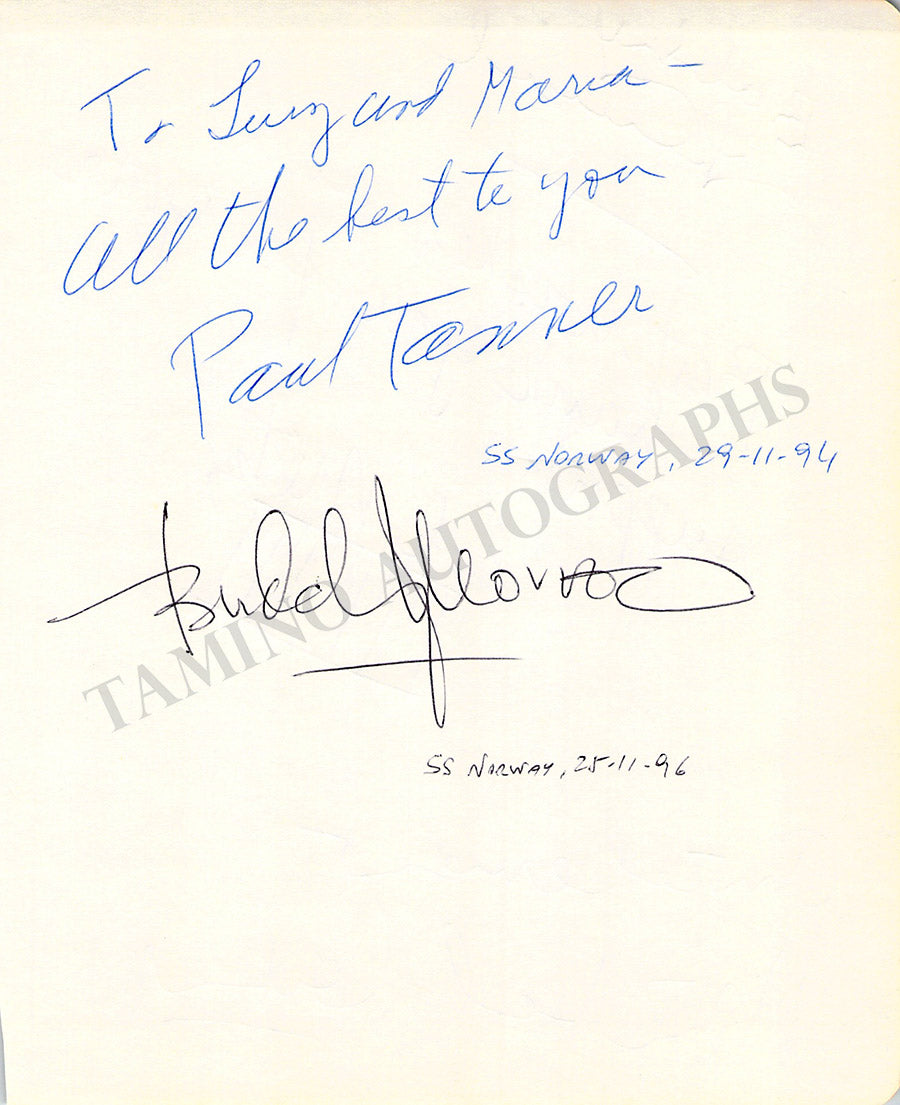 To Luiz and Maria -
All the best to you
Paul Tanner
SS NORWAY, 29-11-94
TAMINO AUTOGRAPHS
Budd
SS NORWAY, 25-11-96